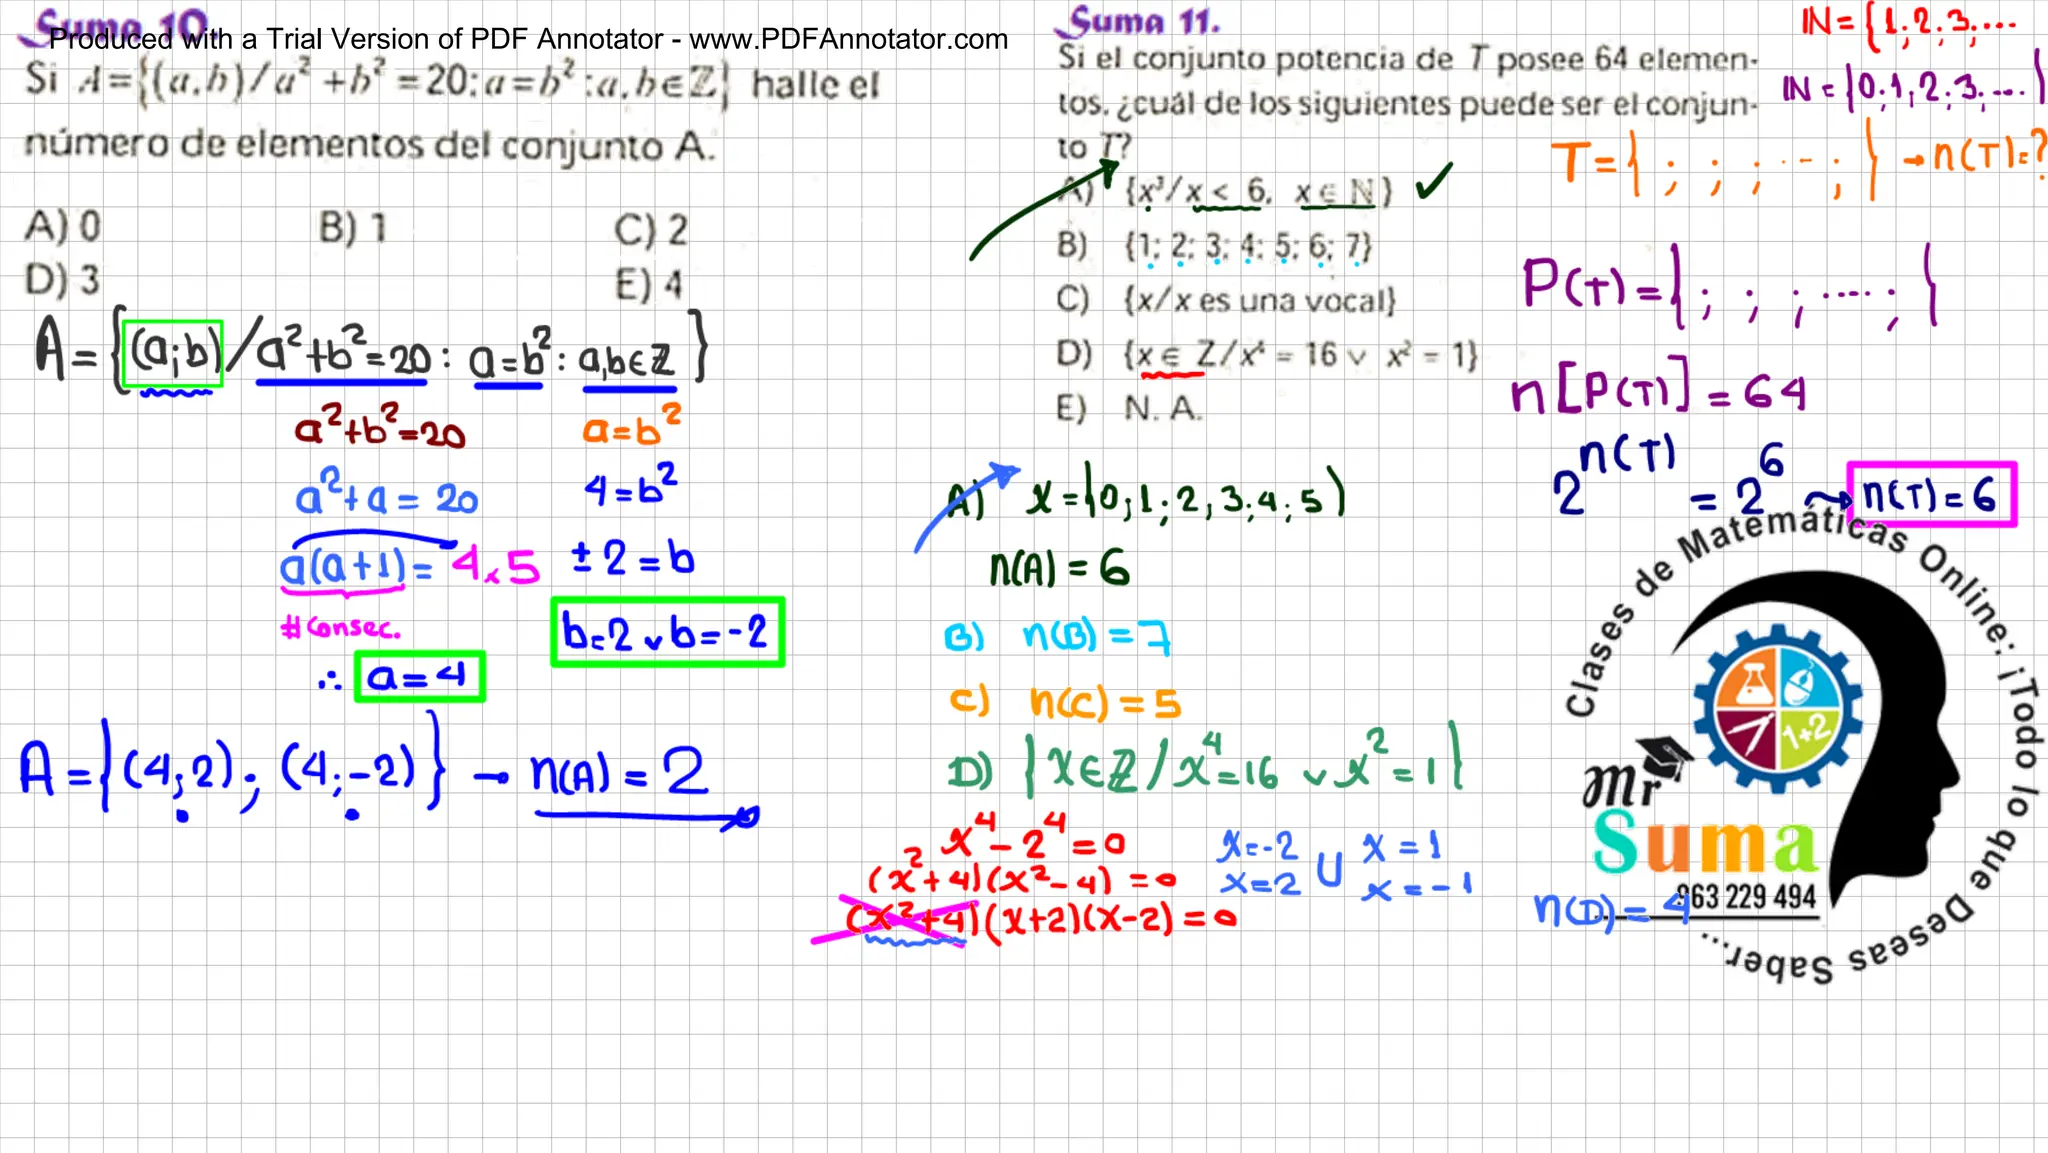 Suma 10.
Produced with a Trial Version of PDF Annotator - www.PDFAnnotator.com
Si A={(a,b)/a²+b²=20; a=b²; a,b∈ℤ} halle el
número de elementos del conjunto A.
A) 0 B) 1 C) 2
D) 3 E) 4
A={(a;b)/a²+b²=20: a=b²: a,b∈ℤ}
a²+b²=20 a=b²
a²+a=20 4=b²
a(a+1)=4×5 ±2=b
#consec. b=2 ∨ b=-2
∴ a=4
A={(4;2); (4;-2)} → n(A)=2
Suma 11.
Si el conjunto potencia de T posee 64 elemen-
tos, ¿cuál de los siguientes puede ser el conjun-
to T?
A) {x³/x < 6, x ∈ ℕ} ✓
B) {1; 2; 3; 4; 5; 6; 7}
C) {x/x es una vocal}
D) {x ∈ Z/x⁴ = 16 ∨ x² = 1}
E) N. A.
A) x={0;1;2,3;4;5}
n(A)=6
B) n(B)=7
C) n(C)=5
D) {x∈ℤ/x⁴=16 ∨ x²=1}
x⁴-2⁴=0
(x²+4)(x²-4)=0
(x²+4)(x+2)(x-2)=0
x=-2 ∪ x=1
x=2 x=-1
n(D)=4
ℕ={1;2;3;...
ℕ={0;1,2;3,...}
T={ ; ; ; ... ; } → n(T)=?
P(T)={ ; ; ; .... ; }
n[P(T)]=64
2ⁿ⁽ᵀ⁾=2⁶ → n(T)=6
Clases de Matemáticas Online: ¡Todo lo que Deseas Saber...
1+2
Mr
Suma
963 229 494